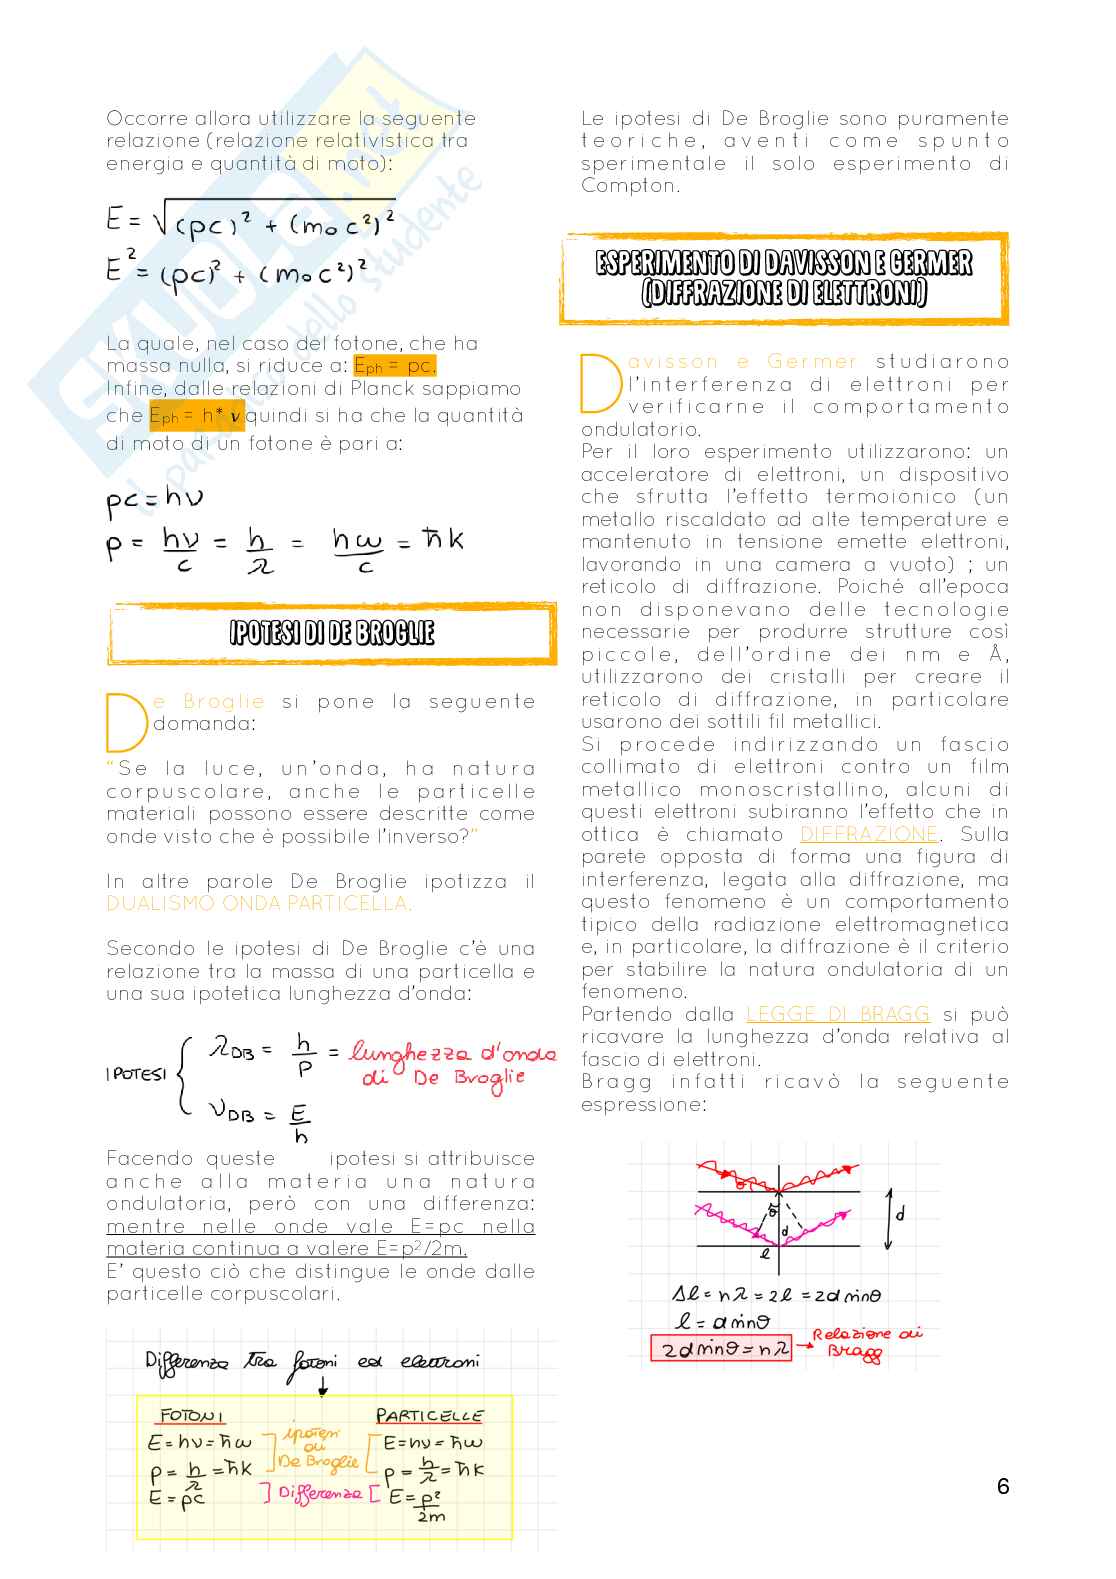 Occorre allora utilizzare la seguente
relazione (relazione relativistica tra
energia e quantità di moto):
E = √(pc)² + (m₀c²)²
E² = (pc)² + (m₀c²)²
La quale, nel caso del fotone, che ha
massa nulla, si riduce a: Eph = pc.
Infine, dalle relazioni di Planck sappiamo
che Eph = h* ν quindi si ha che la quantità
di moto di un fotone è pari a:
pc = hν
p = hν/c = h/λ = ħω/c = ħk
IPOTESI DI DE BROGLIE
De Broglie si pone la seguente
domanda:
“Se la luce, un'onda, ha natura
corpuscolare, anche le particelle
materiali possono essere descritte come
onde visto che è possibile l'inverso?”
In altre parole De Broglie ipotizza il
DUALISMO ONDA PARTICELLA.
Secondo le ipotesi di De Broglie c'è una
relazione tra la massa di una particella e
una sua ipotetica lunghezza d'onda:
IPOTESI { λDB = h/p = lunghezza d'onda
di De Broglie
νDB = E/h
Facendo queste ipotesi si attribuisce
anche alla materia una natura
ondulatoria, però con una differenza:
mentre nelle onde vale E=pc nella
materia continua a valere E=p²/2m.
E' questo ciò che distingue le onde dalle
particelle corpuscolari.
Differenza tra fotoni ed elettroni
FOTONI
E = hν = ħω
p = h/λ = ħk
E = pc
ipotesi
di
De Broglie
Differenza
PARTICELLE
E = hν = ħω
p = h/λ = ħk
E = p²/2m
Le ipotesi di De Broglie sono puramente
teoriche, aventi come spunto
sperimentale il solo esperimento di
Compton.
ESPERIMENTO DI DAVISSON E GERMER
(DIFFRAZIONE DI ELETTRONI)
Davisson e Germer studiarono
l'interferenza di elettroni per
verificarne il comportamento
ondulatorio.
Per il loro esperimento utilizzarono: un
acceleratore di elettroni, un dispositivo
che sfrutta l'effetto termoionico (un
metallo riscaldato ad alte temperature e
mantenuto in tensione emette elettroni,
lavorando in una camera a vuoto) ; un
reticolo di diffrazione. Poiché all'epoca
non disponevano delle tecnologie
necessarie per produrre strutture così
piccole, dell'ordine dei nm e Å,
utilizzarono dei cristalli per creare il
reticolo di diffrazione, in particolare
usarono dei sottili fil metallici.
Si procede indirizzando un fascio
collimato di elettroni contro un film
metallico monoscristallino, alcuni di
questi elettroni subiranno l'effetto che in
ottica è chiamato DIFFRAZIONE. Sulla
parete opposta di forma una figura di
interferenza, legata alla diffrazione, ma
questo fenomeno è un comportamento
tipico della radiazione elettromagnetica
e, in particolare, la diffrazione è il criterio
per stabilire la natura ondulatoria di un
fenomeno.
Partendo dalla LEGGE DI BRAGG si può
ricavare la lunghezza d'onda relativa al
fascio di elettroni.
Bragg infatti ricavò la seguente
espressione:
θ
θ
d
l
d
Δl = nλ = 2l = 2d sinθ
l = d sinθ
2d sinθ = nλ → Relazione di
Bragg
6
SKUOLA.net
il paradiso dello studente